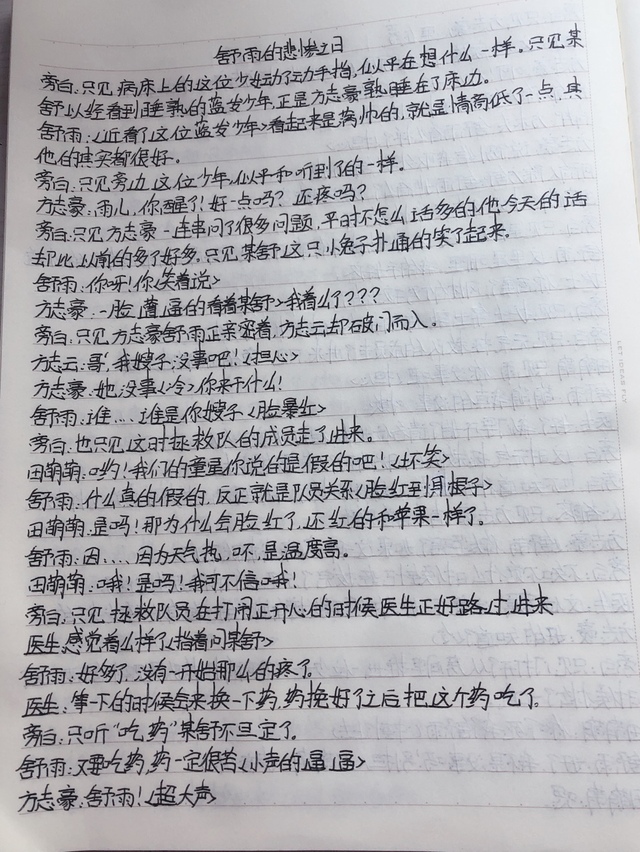 舒雨的悲惨之日
旁白:只见病床上的这位少女动了动手指,似乎在想什么一样。只见某
舒以经看到睡熟的蓝发少年,正是方志豪熟睡在了床边。
舒雨:<近看了这位蓝发少年>看起来是蛮帅的,就是情商低了一点,其
他的其实都很好。
旁白:只见旁边这位少年,似乎和听到了的一样。
方志豪:雨儿,你醒了!好一点吗?还疼吗?
旁白:只见方志豪一连串问了很多问题,平时不怎么话多的他今天的话
却比以前的多了好多,只见某舒这只小兔子扑通的笑了起来。
舒雨:你呀!你<笑着说>
方志豪:一脸懵逼的看着某舒>我着么了???
旁白:只见方志豪舒雨正亲密着,方志云却破门而入。
方志云:哥,我嫂子没事吧!<担心>
方志豪:她没事<冷>你来干什么!
舒雨:谁....谁是你嫂子<脸暴红>
旁白:也只见这时拯救队的成员走了进来。
田萌萌:哟!我们的童是你说的是假的吧!<坏笑>
舒雨:什么真的假的,反正就是队员关系<脸红到耳根子>
田萌萌:是吗!那为什么会脸红了,还红的和苹果一样了。
舒雨:因....因为天气热,呸,是温度高。
田萌萌:哦!是吗!我可不信哦!
旁白:只见拯救队员在打闹正开心的时候医生正好路过进来
医生:感觉着么样了<指着问某舒>
舒雨:好多了,没有一开始那么的疼了。
医生:等一下的时候会来换一下药,药换好了之后把这个药吃了。
旁白:只听"吃药"某舒不旦定了。
舒雨:又要吃药,药一定很苦<小声的逼逼>
方志豪:舒雨!<超大声>